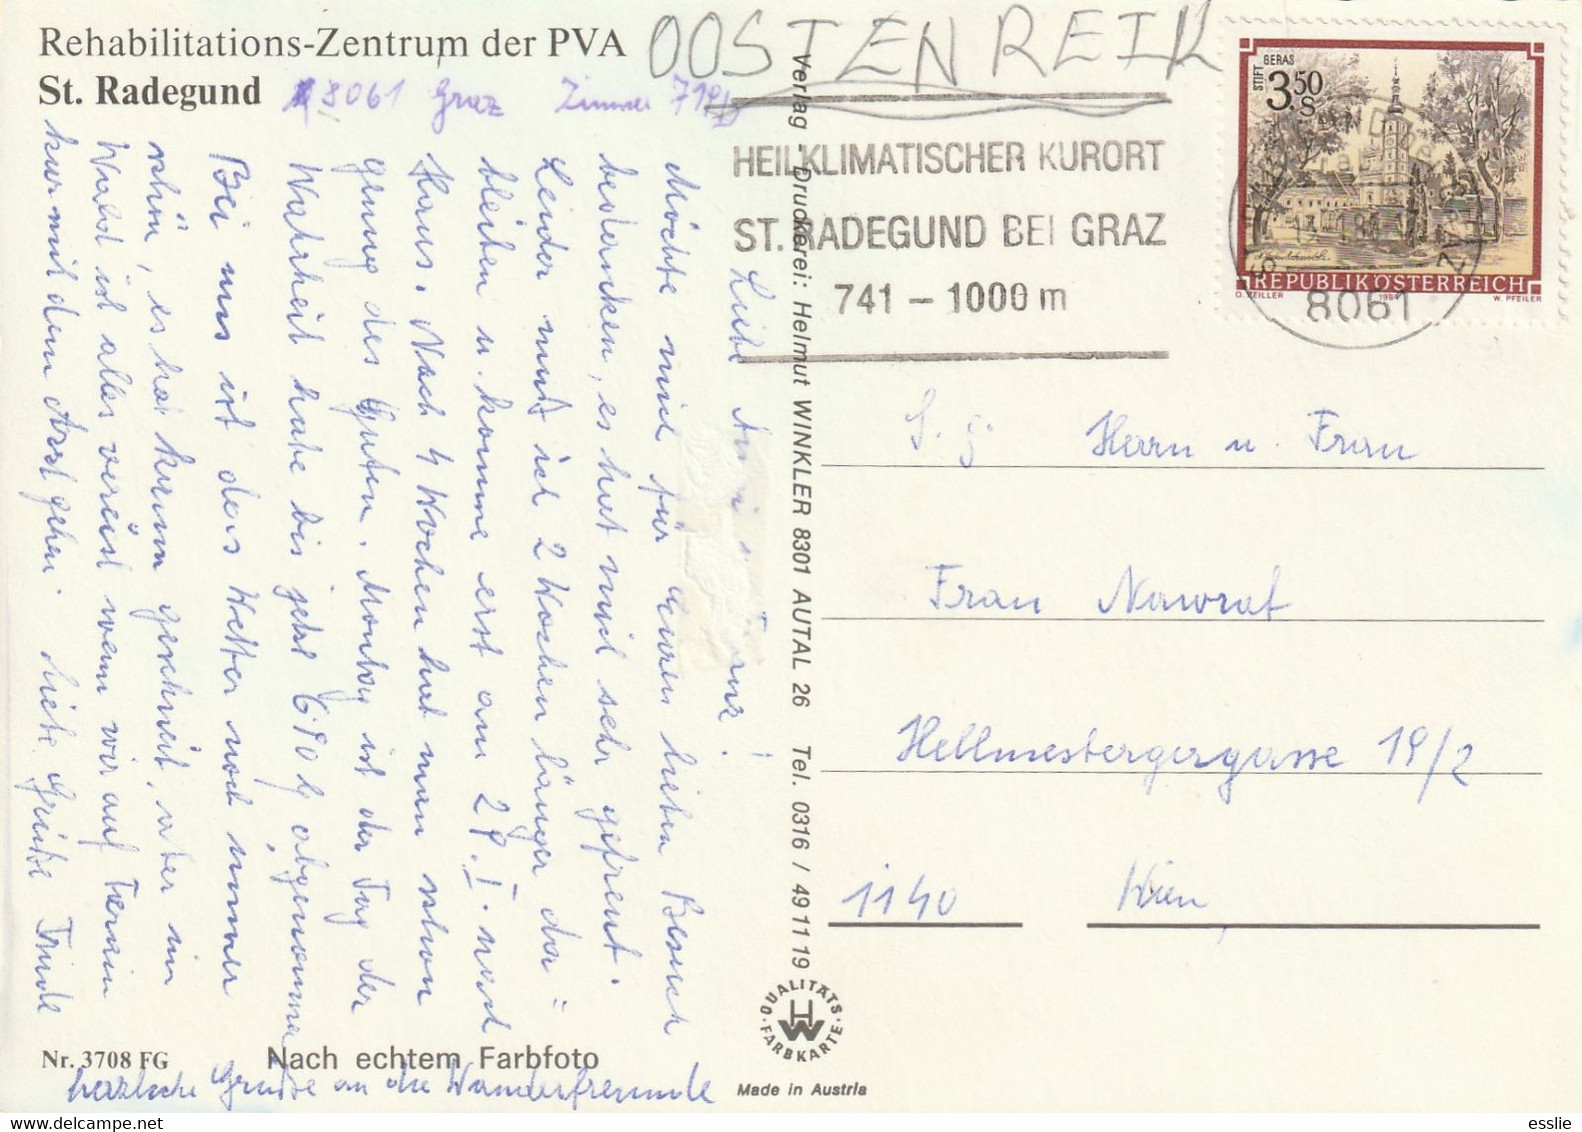 Rehabilitations-Zentrum der PVA
St. Radegund
8061 Graz Zimmer 719
OOSTENREIK
HEILKLIMATISCHER KURORT
ST. RADEGUND BEI GRAZ
741 – 1000 m
STIFT GERAS
3.50
S
REPUBLIK ÖSTERREICH
O. ZEILLER 1984 W. PFEILER
8061
Liebe
Möchte mich für Euren lieben Besuch
bedanken, es hat mich sehr gefreut.
Leider muß ich 2 Wochen länger da=
bleiben u. komme erst am 28. I. nach
Haus. Nach 4 Wochen hat man schon
genug des Guten. Montag ist der Tag der
Wahrheit habe bis jetzt 6.90 kg abgenommen
Bei uns ist das Wetter noch immer
schön, es hat kaum geschneit, aber im
Wald ist alles vereist wenn wir auf Terrain
kur mit dem Arzt gehen. Liebe Grüße Trude
herzliche Grüße an die Wanderfreunde
Nr. 3708 FG
Nach echtem Farbfoto
Verlag - Druckerei: Helmut WINKLER 8301 AUTAL 26 Tel. 0316 / 49 11 19
QUALITÄTS
HW
FARBKARTE
Made in Austria
S. g. Herrn u. Frau
Frau Nawrat
Hellmestergergasse 19/2
1140 Wien
esslie